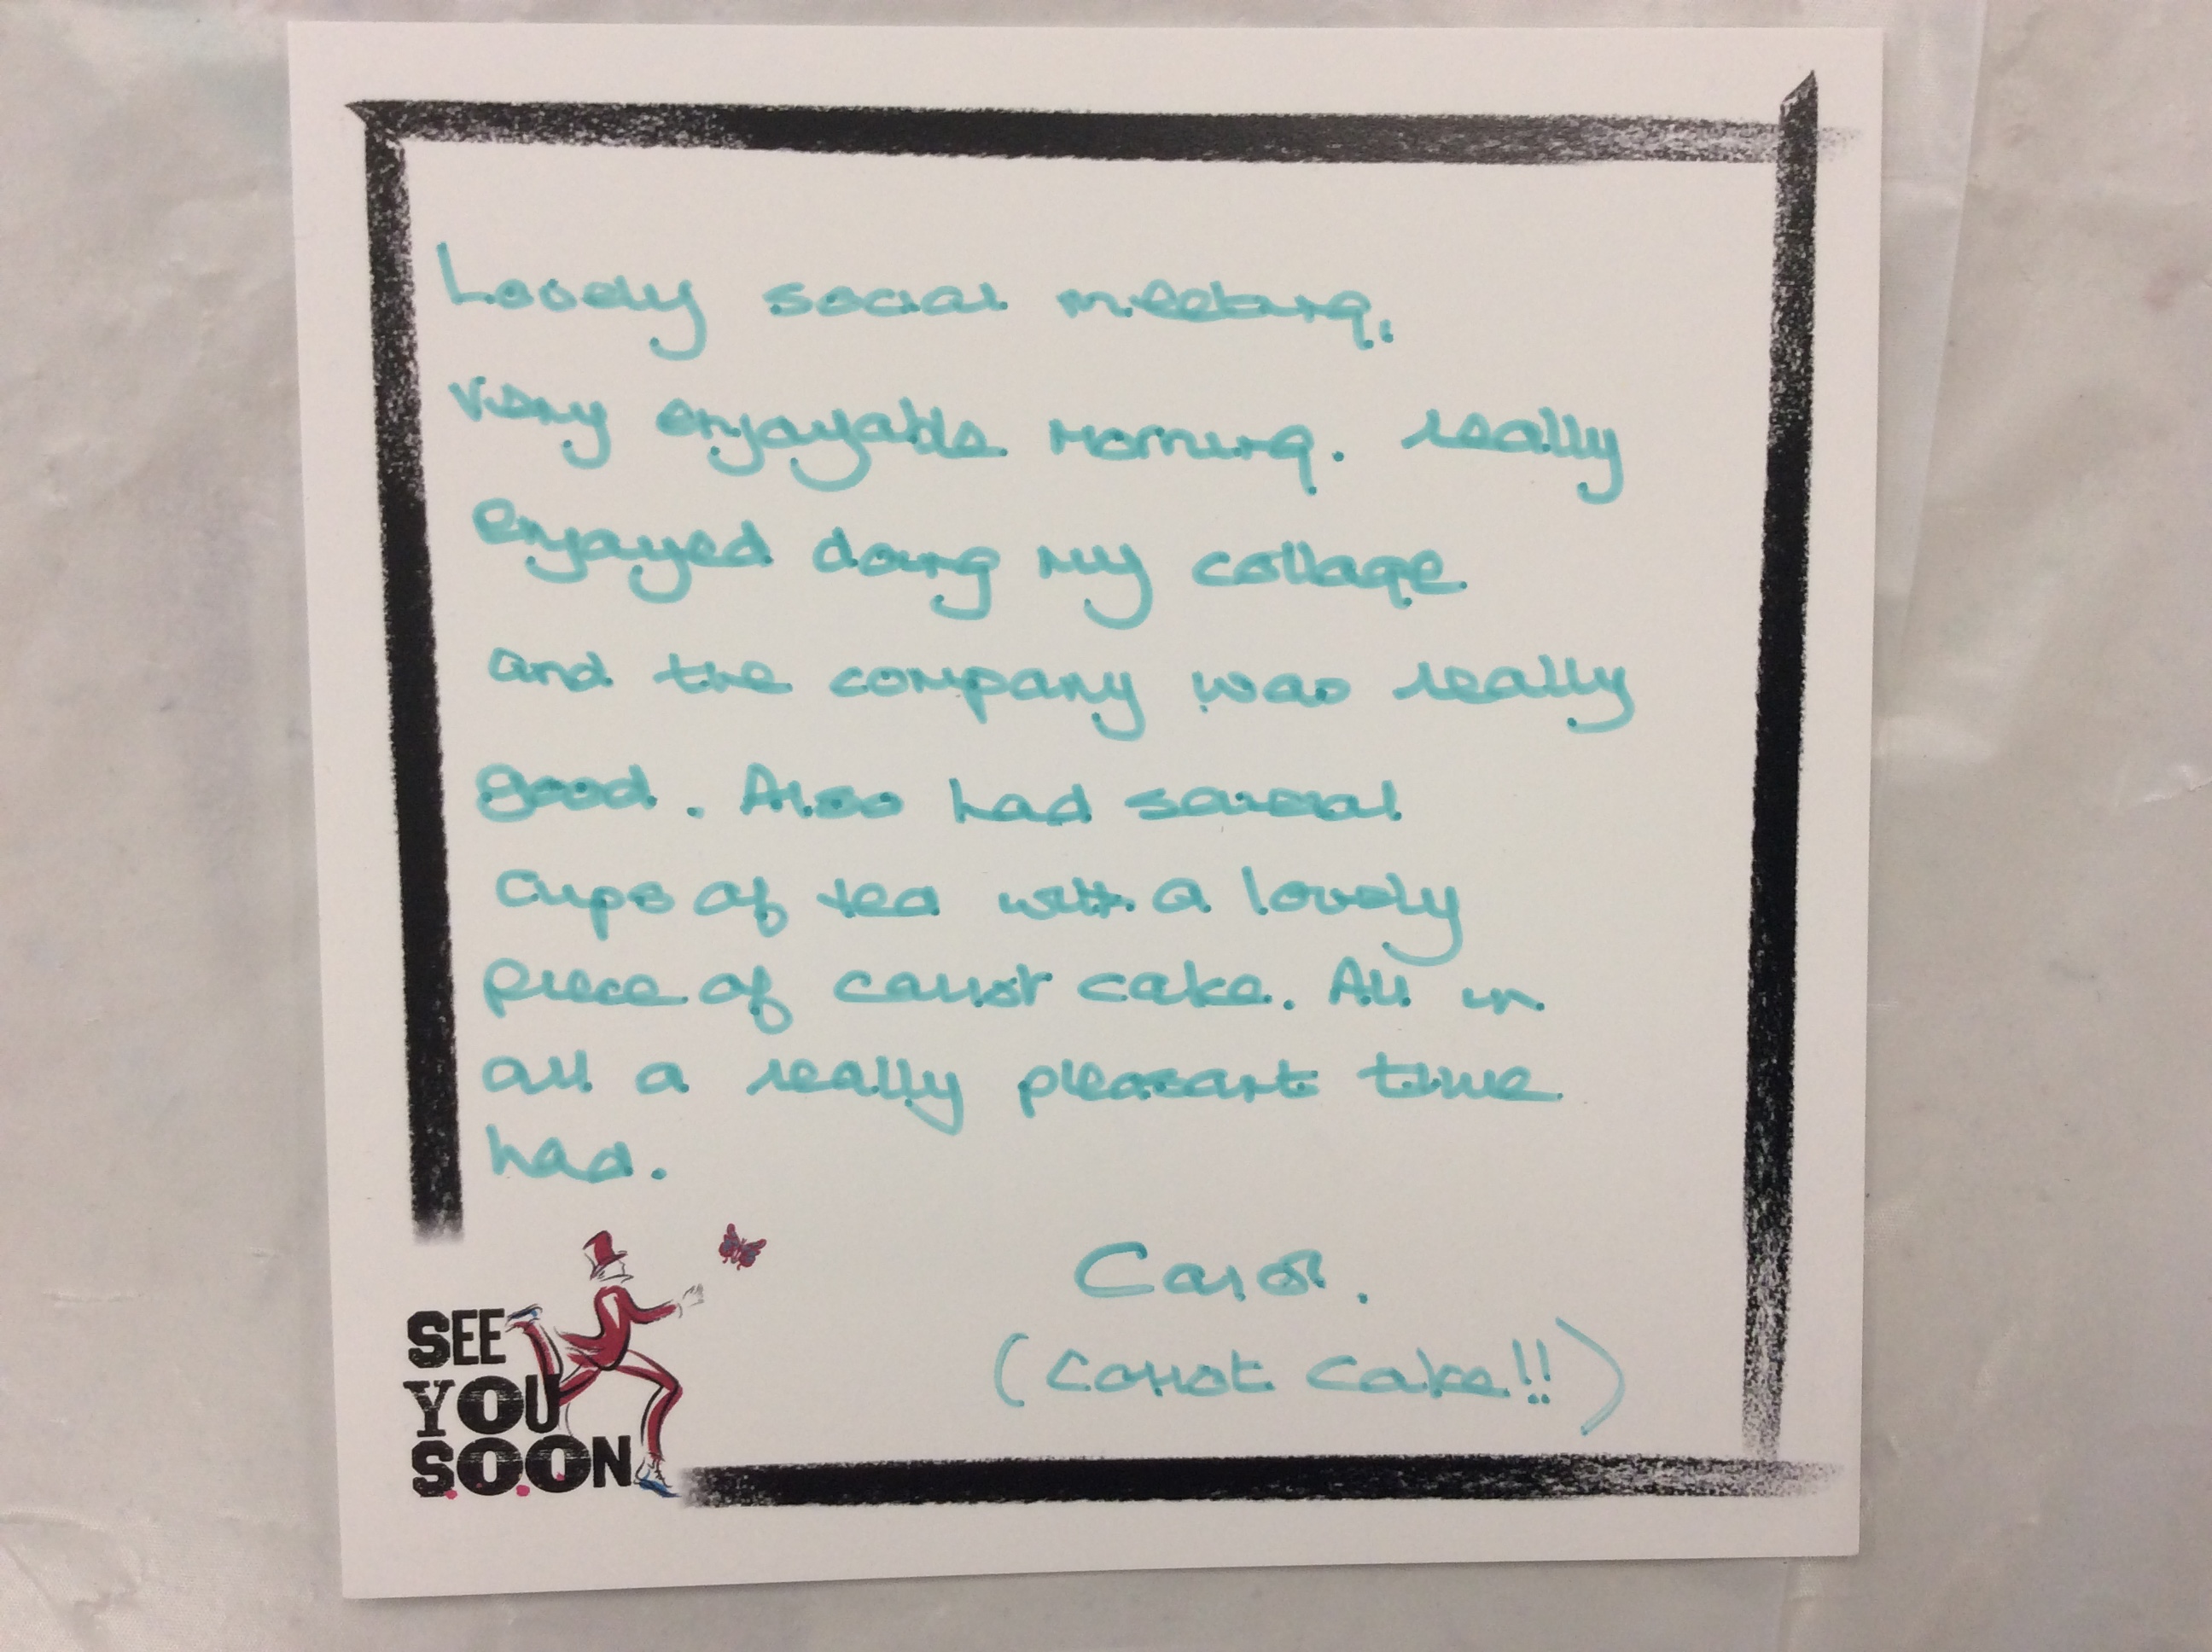 Lovely social meeting.
Very enjoyable morning. really
enjoyed doing my collage
and the company was really
good. Also had several
cups of tea with a lovely
piece of carrot cake. All in
all a really pleasant time
had.
Carol.
(Carrot Cake!!)
SEE
YOU
SOON